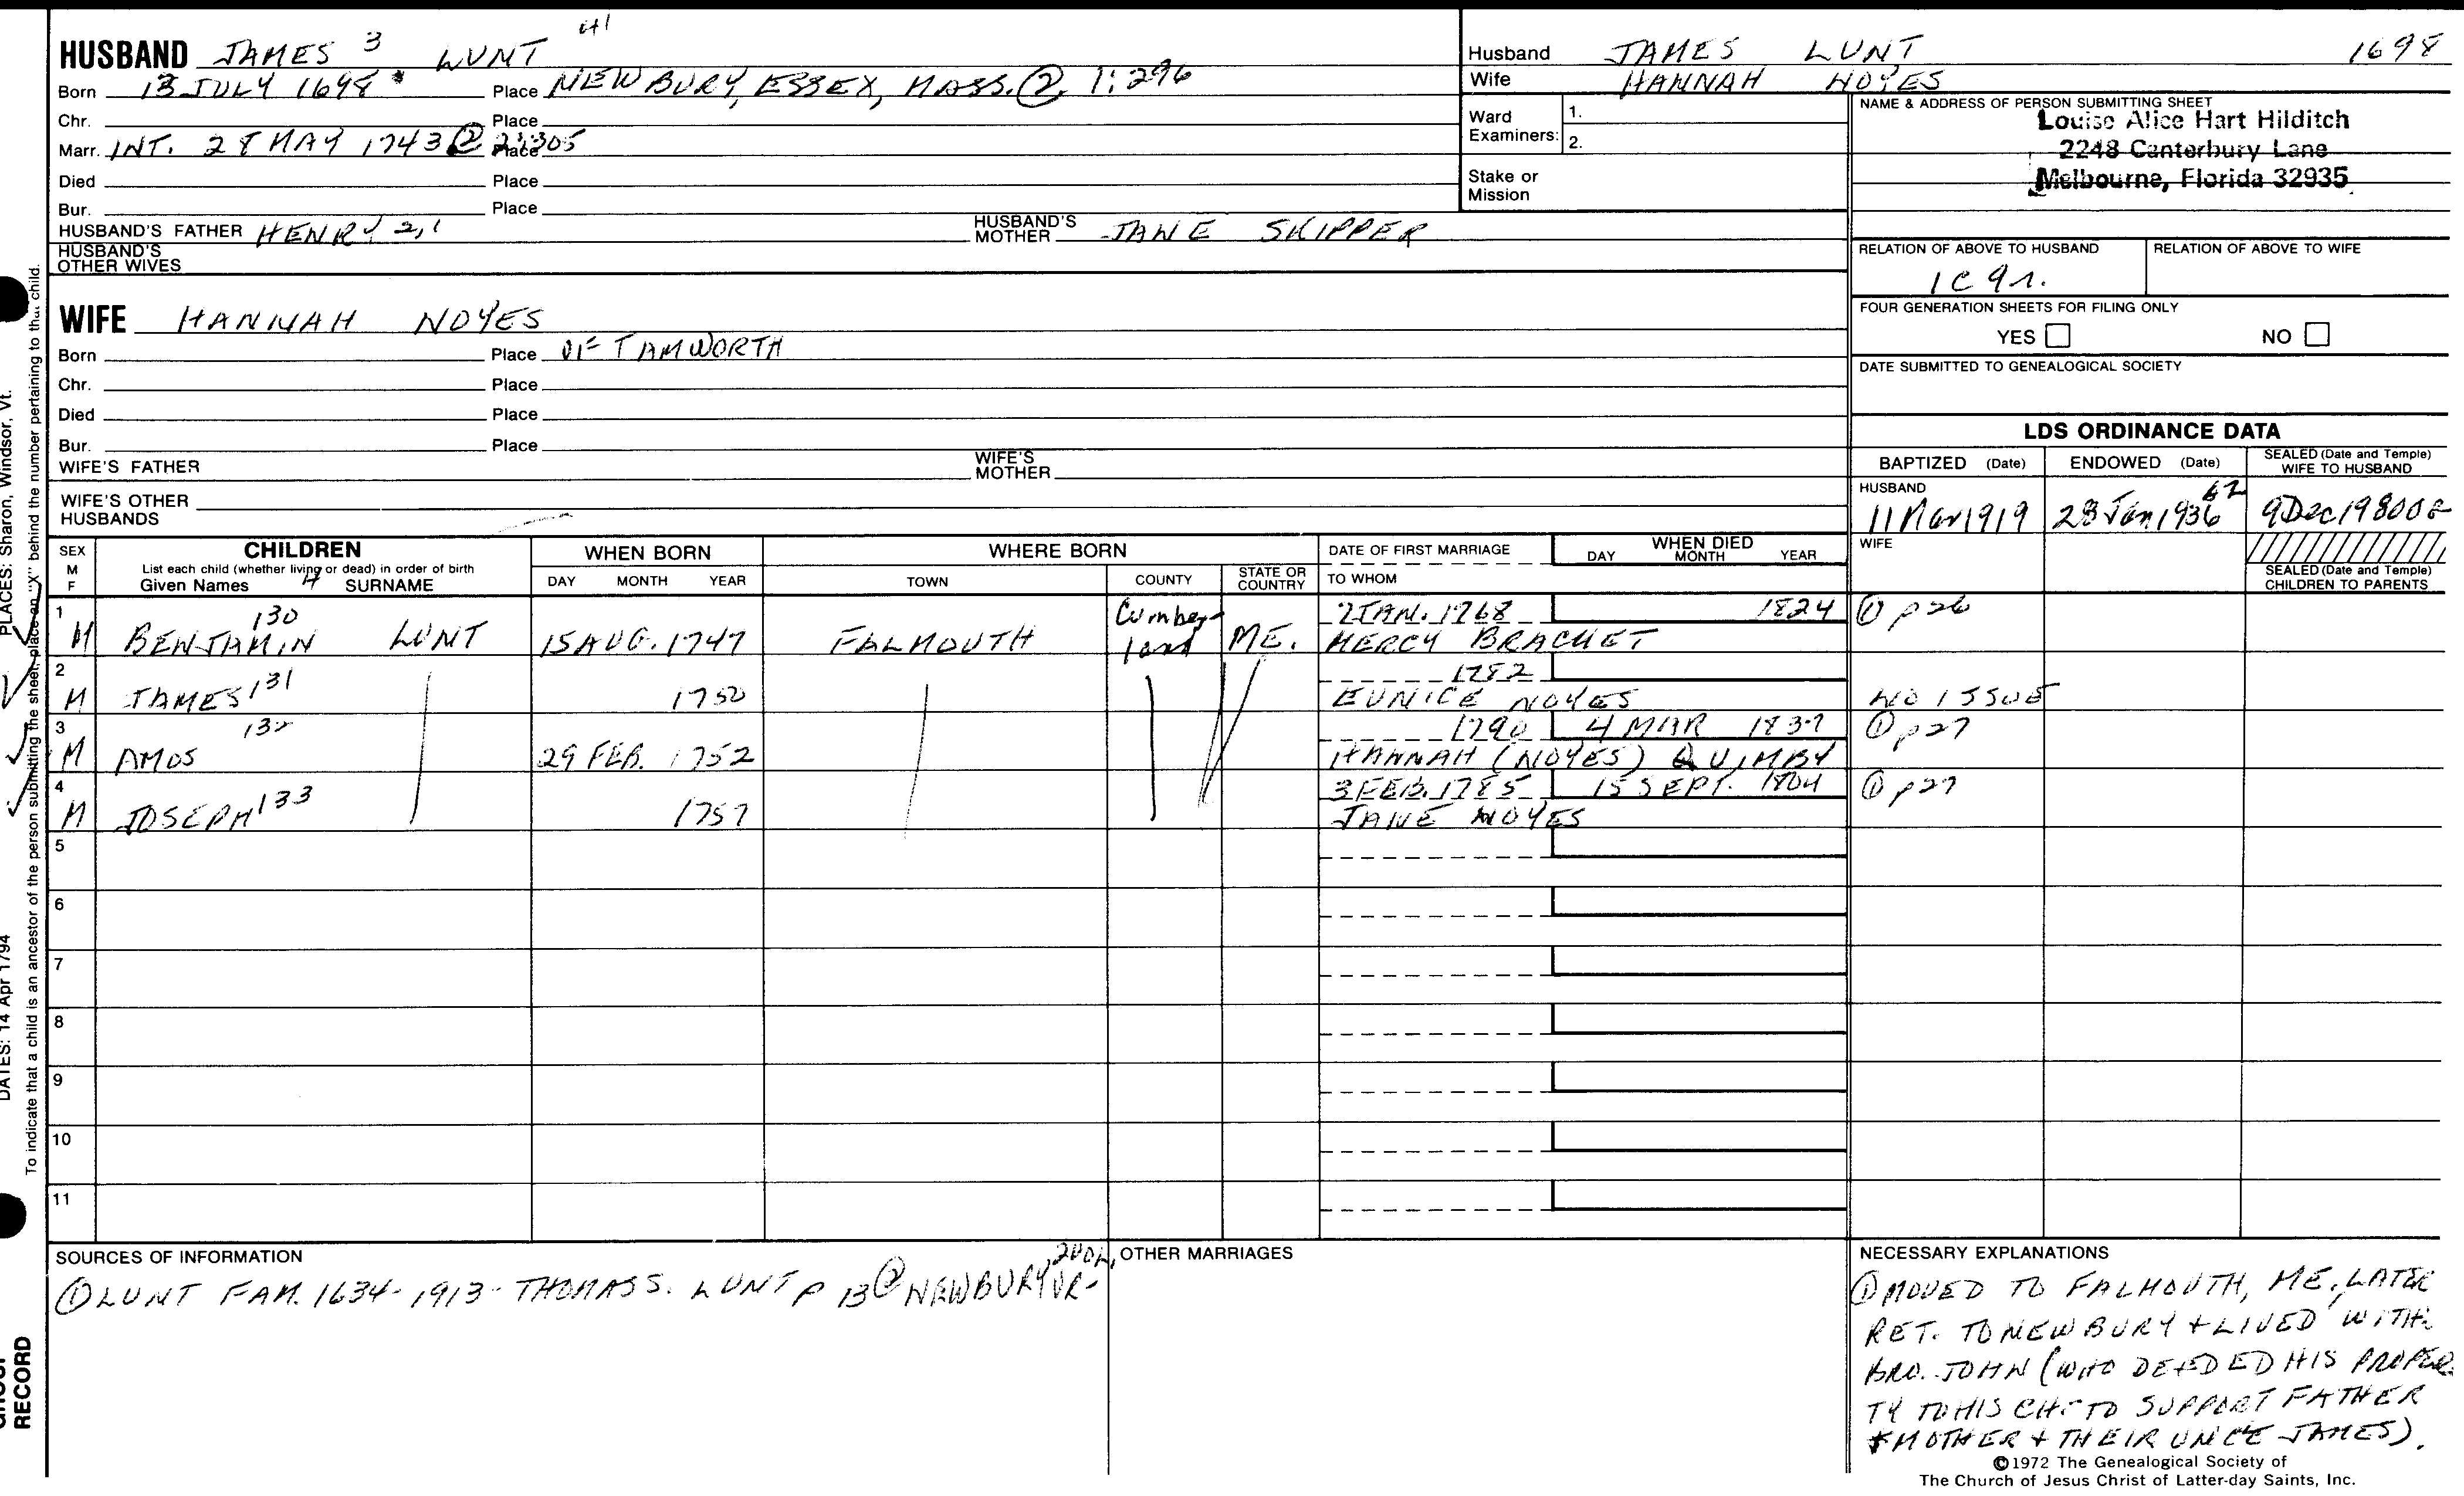 HUSBAND JAMES 3 LUNT 41
Born 13 JULY 1698 * Place NEWBURY, ESSEX, MASS. ② 1:296
Chr. Place
Marr. INT. 28 MAY 1743 ② Place 2:305
Died Place
Bur. Place
HUSBAND'S FATHER HENRY 2,1 HUSBAND'S MOTHER JANE SKIPPER
HUSBAND'S OTHER WIVES
Husband JAMES LUNT 1698
Wife HANNAH NOYES
Ward Examiners: 1.
2.
Stake or Mission
NAME & ADDRESS OF PERSON SUBMITTING SHEET
Louise Alice Hart Hilditch
2248 Canterbury Lane
Melbourne, Florida 32935
RELATION OF ABOVE TO HUSBAND RELATION OF ABOVE TO WIFE
1C 9r.
FOUR GENERATION SHEETS FOR FILING ONLY
YES NO
DATE SUBMITTED TO GENEALOGICAL SOCIETY
WIFE HANNAH NOYES
Born Place OF TAMWORTH
Chr. Place
Died Place
Bur. Place
WIFE'S FATHER WIFE'S MOTHER
WIFE'S OTHER HUSBANDS
LDS ORDINANCE DATA
BAPTIZED (Date) ENDOWED (Date) SEALED (Date and Temple) WIFE TO HUSBAND
HUSBAND
11 Mar 1919 28 Jan 1936 62 9 Dec 1980
WIFE
SEALED (Date and Temple) CHILDREN TO PARENTS
SEX M F CHILDREN WHEN BORN WHERE BORN DATE OF FIRST MARRIAGE WHEN DIED
List each child (whether living or dead) in order of birth
Given Names 4 SURNAME DAY MONTH YEAR TOWN COUNTY STATE OR COUNTRY TO WHOM DAY MONTH YEAR
1 M BENJAMIN 130 LUNT 15 AUG. 1747 FALMOUTH Cumberland ME. 2 JAN. 1768 1824 ① p26
MERCY BRACKET
2 M JAMES 131 1750 1782
EUNICE NOYES NO ISSUE
3 M AMOS 132 29 FEB. 1752 1790 4 MAR 1837 ① p27
HANNAH (NOYES) QUIMBY
4 M JOSEPH 133 1757 3 FEB. 1785 15 SEPT. 1804 ① p27
JANE NOYES
5
6
7
8
9
10
11
SOURCES OF INFORMATION
① LUNT FAM. 1634-1913 - THOMAS S. LUNT p 13 ② NEWBURY VR- 2 VOL.
OTHER MARRIAGES
NECESSARY EXPLANATIONS
① MOVED TO FALMOUTH, ME, LATER
RET. TO NEWBURY + LIVED WITH
BRO. JOHN (WHO DEEDED HIS PROPER
TY TO HIS CH. TO SUPPORT FATHER
+ MOTHER + THEIR UNCE JAMES).
©1972 The Genealogical Society of
The Church of Jesus Christ of Latter-day Saints, Inc.
To indicate that a child is an ancestor of the person submitting the sheet, place an "X" behind the number pertaining to that child.
PLACES: Sharon, Windsor, Vt.
DATES: 14 Apr 1794
RECORD